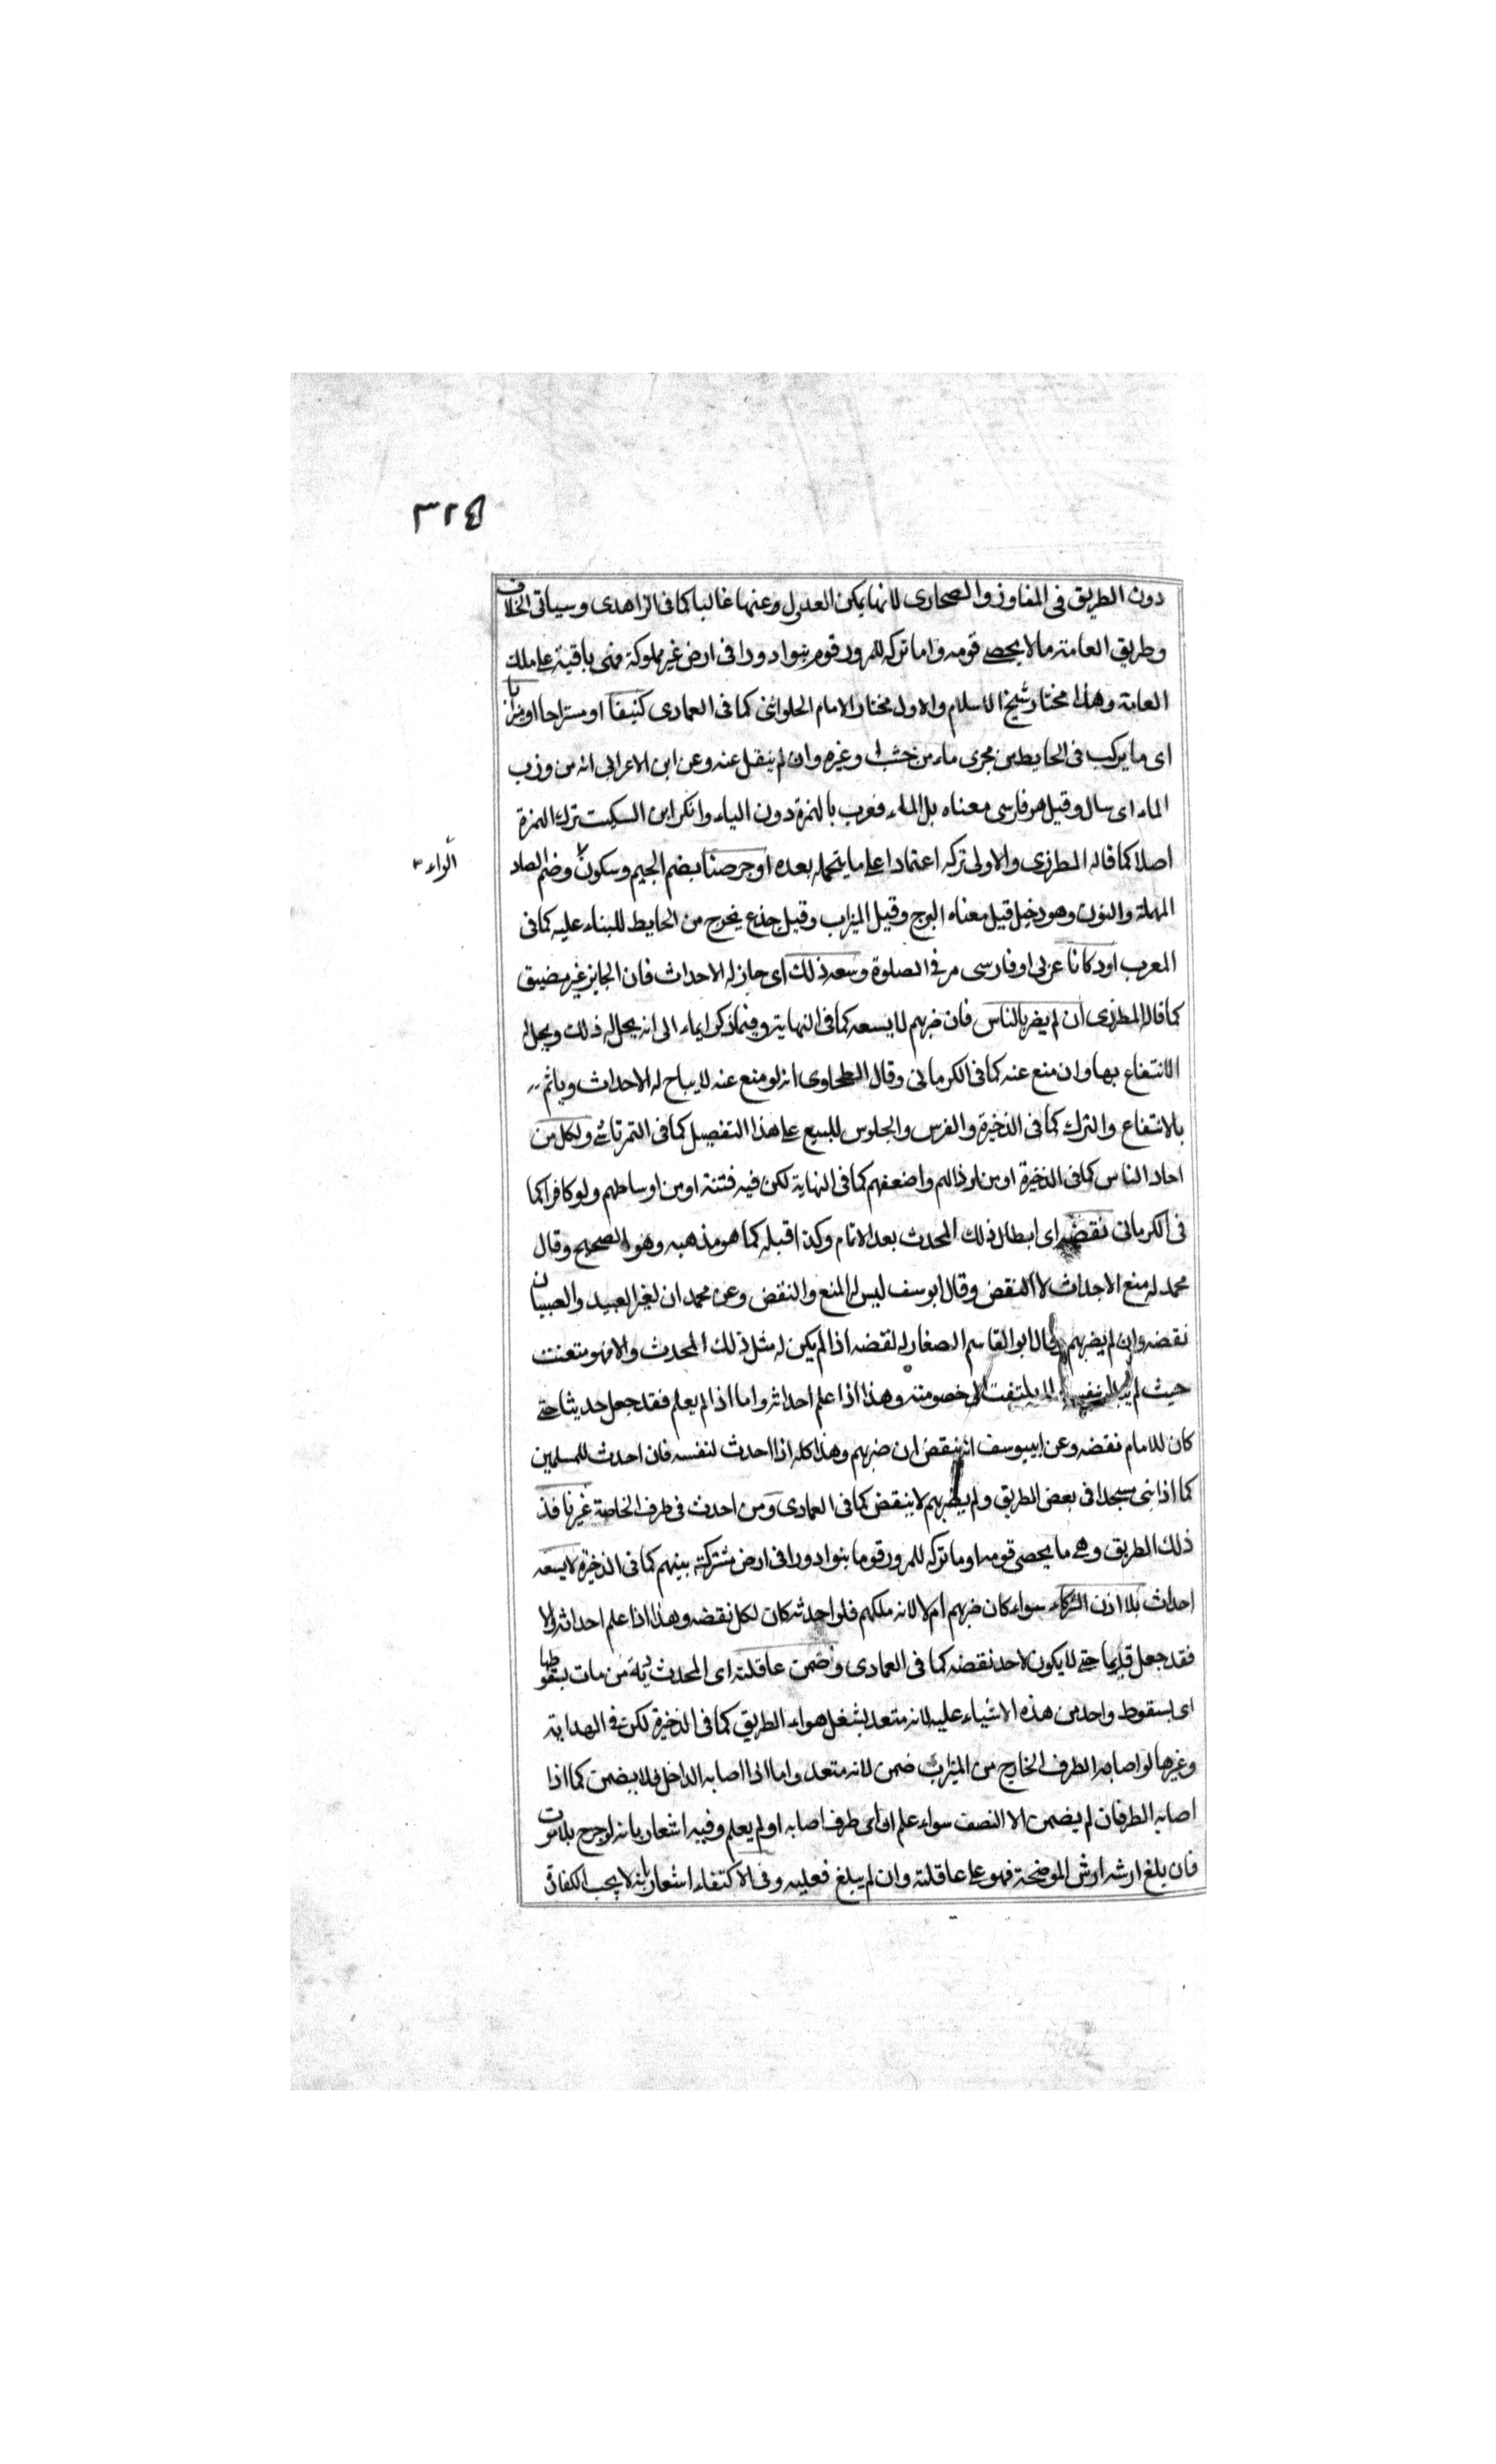 ٣٢٤
دون الطريق فى المفاوز والصحارى لانها يمكن العدول وعنها غالبا كما فى الزاهدى وسياتى الخلاف
وطريق العامة مالا يحصى قومه واما تركه للمرور قوم بنوا دورا فى ارض غير مملوكة فهى باقية على ملك
العامة وهذا مختار شيخ الاسلام والاول مختار الامام الحلوائى كما فى العمادى كنيفا او مستراحا او ميزابا
اى ما يركب فى الحايط من مجرى ماء من خشب او غيره وان لم ينقل عنه وعن ابن الاعرابى انه من وزب
الماء اى سال وقيل هو فارسى معناه بل الماء فعرب بالهمزة دون الياء وانكر ابن السكيت ترك الهمزة
اصلا كما قاله المطرزى والاولى تركه اعتمادا على ما يتحمله بعده او جرصنا بضم الجيم وسكون وضم الصاد
الراء
المهملة والنون وهو دخيل قيل معناه البرج وقيل الميزاب وقيل جذع يخرج من الحايط للبناء عليه كما فى
المعرب او دكانا عربى او فارسى مر فى الصلوة وسعه ذلك اى جاز له الاحداث فان الجايز غير مضيق
كما قاله المطرزى ان لم يضر بالناس فان ضرهم لا يسعه كما فى النهاية وفيما ذكر ايماء الى انه يحل له ذلك ويحل له
الانتفاع بها وان منع عنه كما فى الكرمانى وقال الطحاوى انه لو منع عنه لا يباح له الاحداث وياثم
بالانتفاع والترك كما فى الذخيرة والغرس والجلوس للبيع على هذا التفصيل كما فى التمرتاشى ولكل من
احاد الناس كما فى الذخيرة او من ارذالهم واضعفهم كما فى النهاية لكن فيه فتنة او من اوساطهم ولو كافرا كما
فى الكرمانى نقضه اى ابطال ذلك المحدث بعد الاتمام وكذا قبله كما هو مذهبه وهو الصحيح وقال
محمد له منع الاحداث لا النقض وقال ابو سف ليس له المنع والنقض وعن محمد ان لغير العبيد والصبيان
نقضه وان لم يضرهم وقال ابو القاسم الصفار له نقضه اذا لم يكن له مثل ذلك المحدث والا فهو متعنت
حيث لم لا يلتفت الى خصومته وهذا اذا علم احداثه واما اذا لم يعلم فقد جعل حديثا حتى
كان للامام نقضه وعن ابييوسف انه ينقض ان ضرهم وهذا كله اذا احدث لنفسه فان احدث للمسلمين
كما اذا بنى مسجدا فى بعض الطريق ولم يضرهم لا ينقض كما فى العمادى ومن احدث فى طرف الخاصة غير نافذ
ذلك الطريق وهى ما يحصى قومه او ما تركه للمرور قوما بنوا دورا فى ارض مشتركة بينهم كما فى الذخيرة لا يسعه
احداث بلا اذن الشركاء سواء كان ضرهم ام لا لانه ملكهم فلو احدثه كان لكل نقضه وهذا اذا علم احداثه والا
فقد جعل قديما حتى لا يكون لاحد نقضه كما فى العمادى وضمن عاقلته اى المحدث دية من مات بسقوطها
اى بسقوط واحد من هذه الاشياء عليه لانه متعد بشغل هواء الطريق كما فى الذخيرة لكن فى الهداية
وغيرها لو اصابه الطرف الخارج من الميزاب ضمن لانه متعد واما اذا اصابه الداخل فلا يضمن كما اذا
اصابه الطرفان لم يضمن الا النصف سواء علم ان اى طرف اصابه او لم يعلم وفيه اشعار بانه لو جرح بلا موت
فان بلغ ارشه ارش الموضحة فهو على عاقلته وان لم يبلغ فعليه وفى الاكتفاء اشعار بانه لا يجب الكفارة